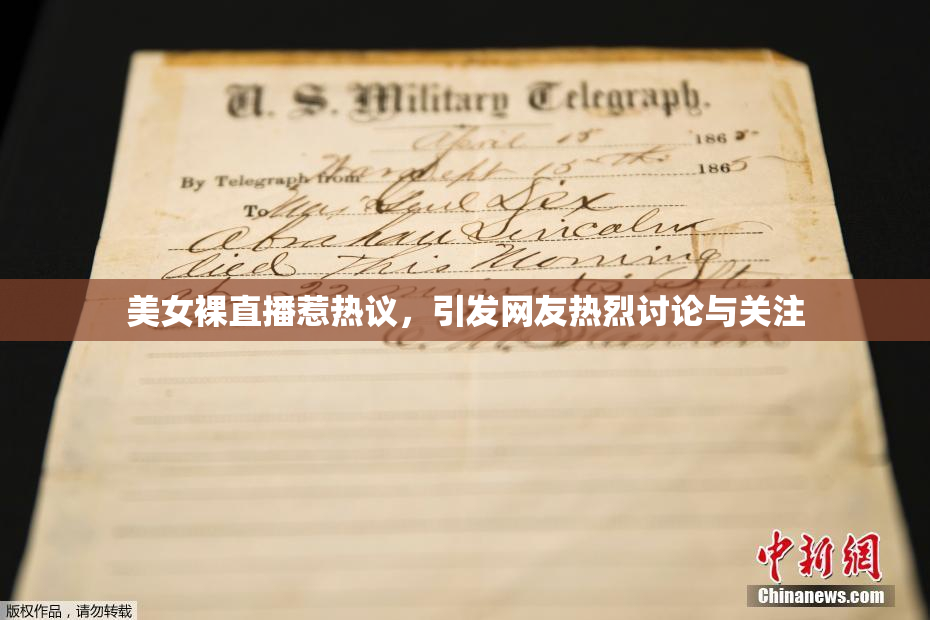 U. S. Military Telegraph.
April 15 1865
By Telegraph from War Dept 15th 1865
To Maj Genl Dix
Abraham Lincoln
died This Morning
at 22 minutes after
美女裸直播惹热议，引发网友热烈讨论与关注
E. M. Stanton
中新网
Chinanews.com
版权作品，请勿转载